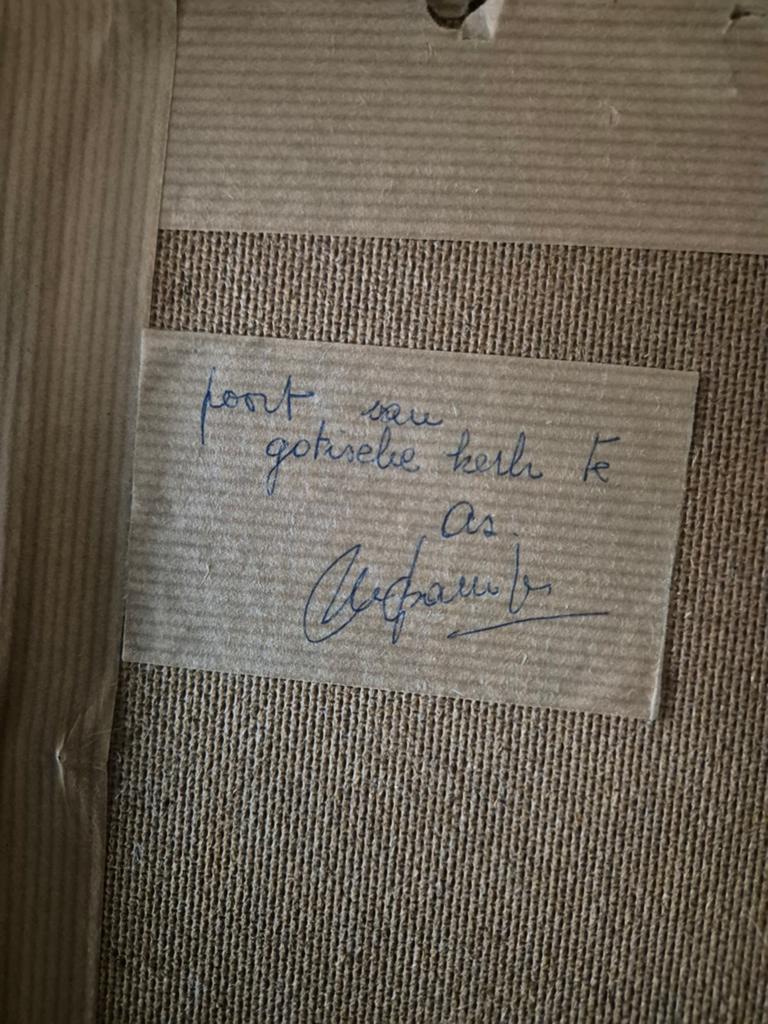 poort van
gotische kerk te
As.